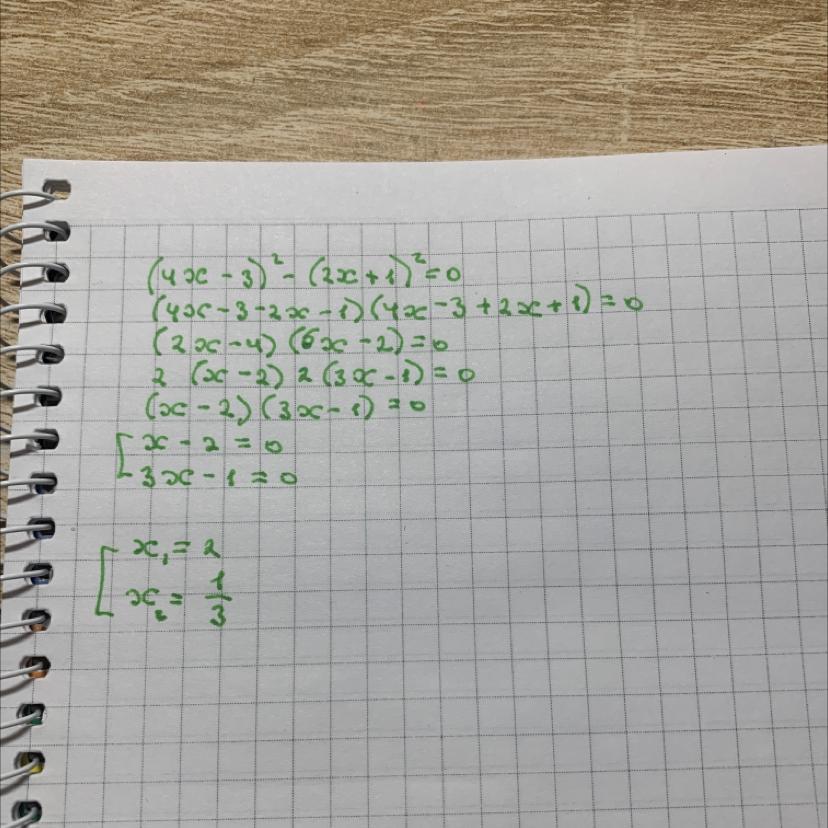 (4x - 3)² - (2x + 1)² = 0
(4x - 3 - 2x - 1)(4x - 3 + 2x + 1) = 0
(2x - 4)(6x - 2) = 0
2 (x - 2) 2 (3x - 1) = 0
(x - 2)(3x - 1) = 0
[ x - 2 = 0
3x - 1 = 0
[ x₁ = 2
x₂ = 1/3